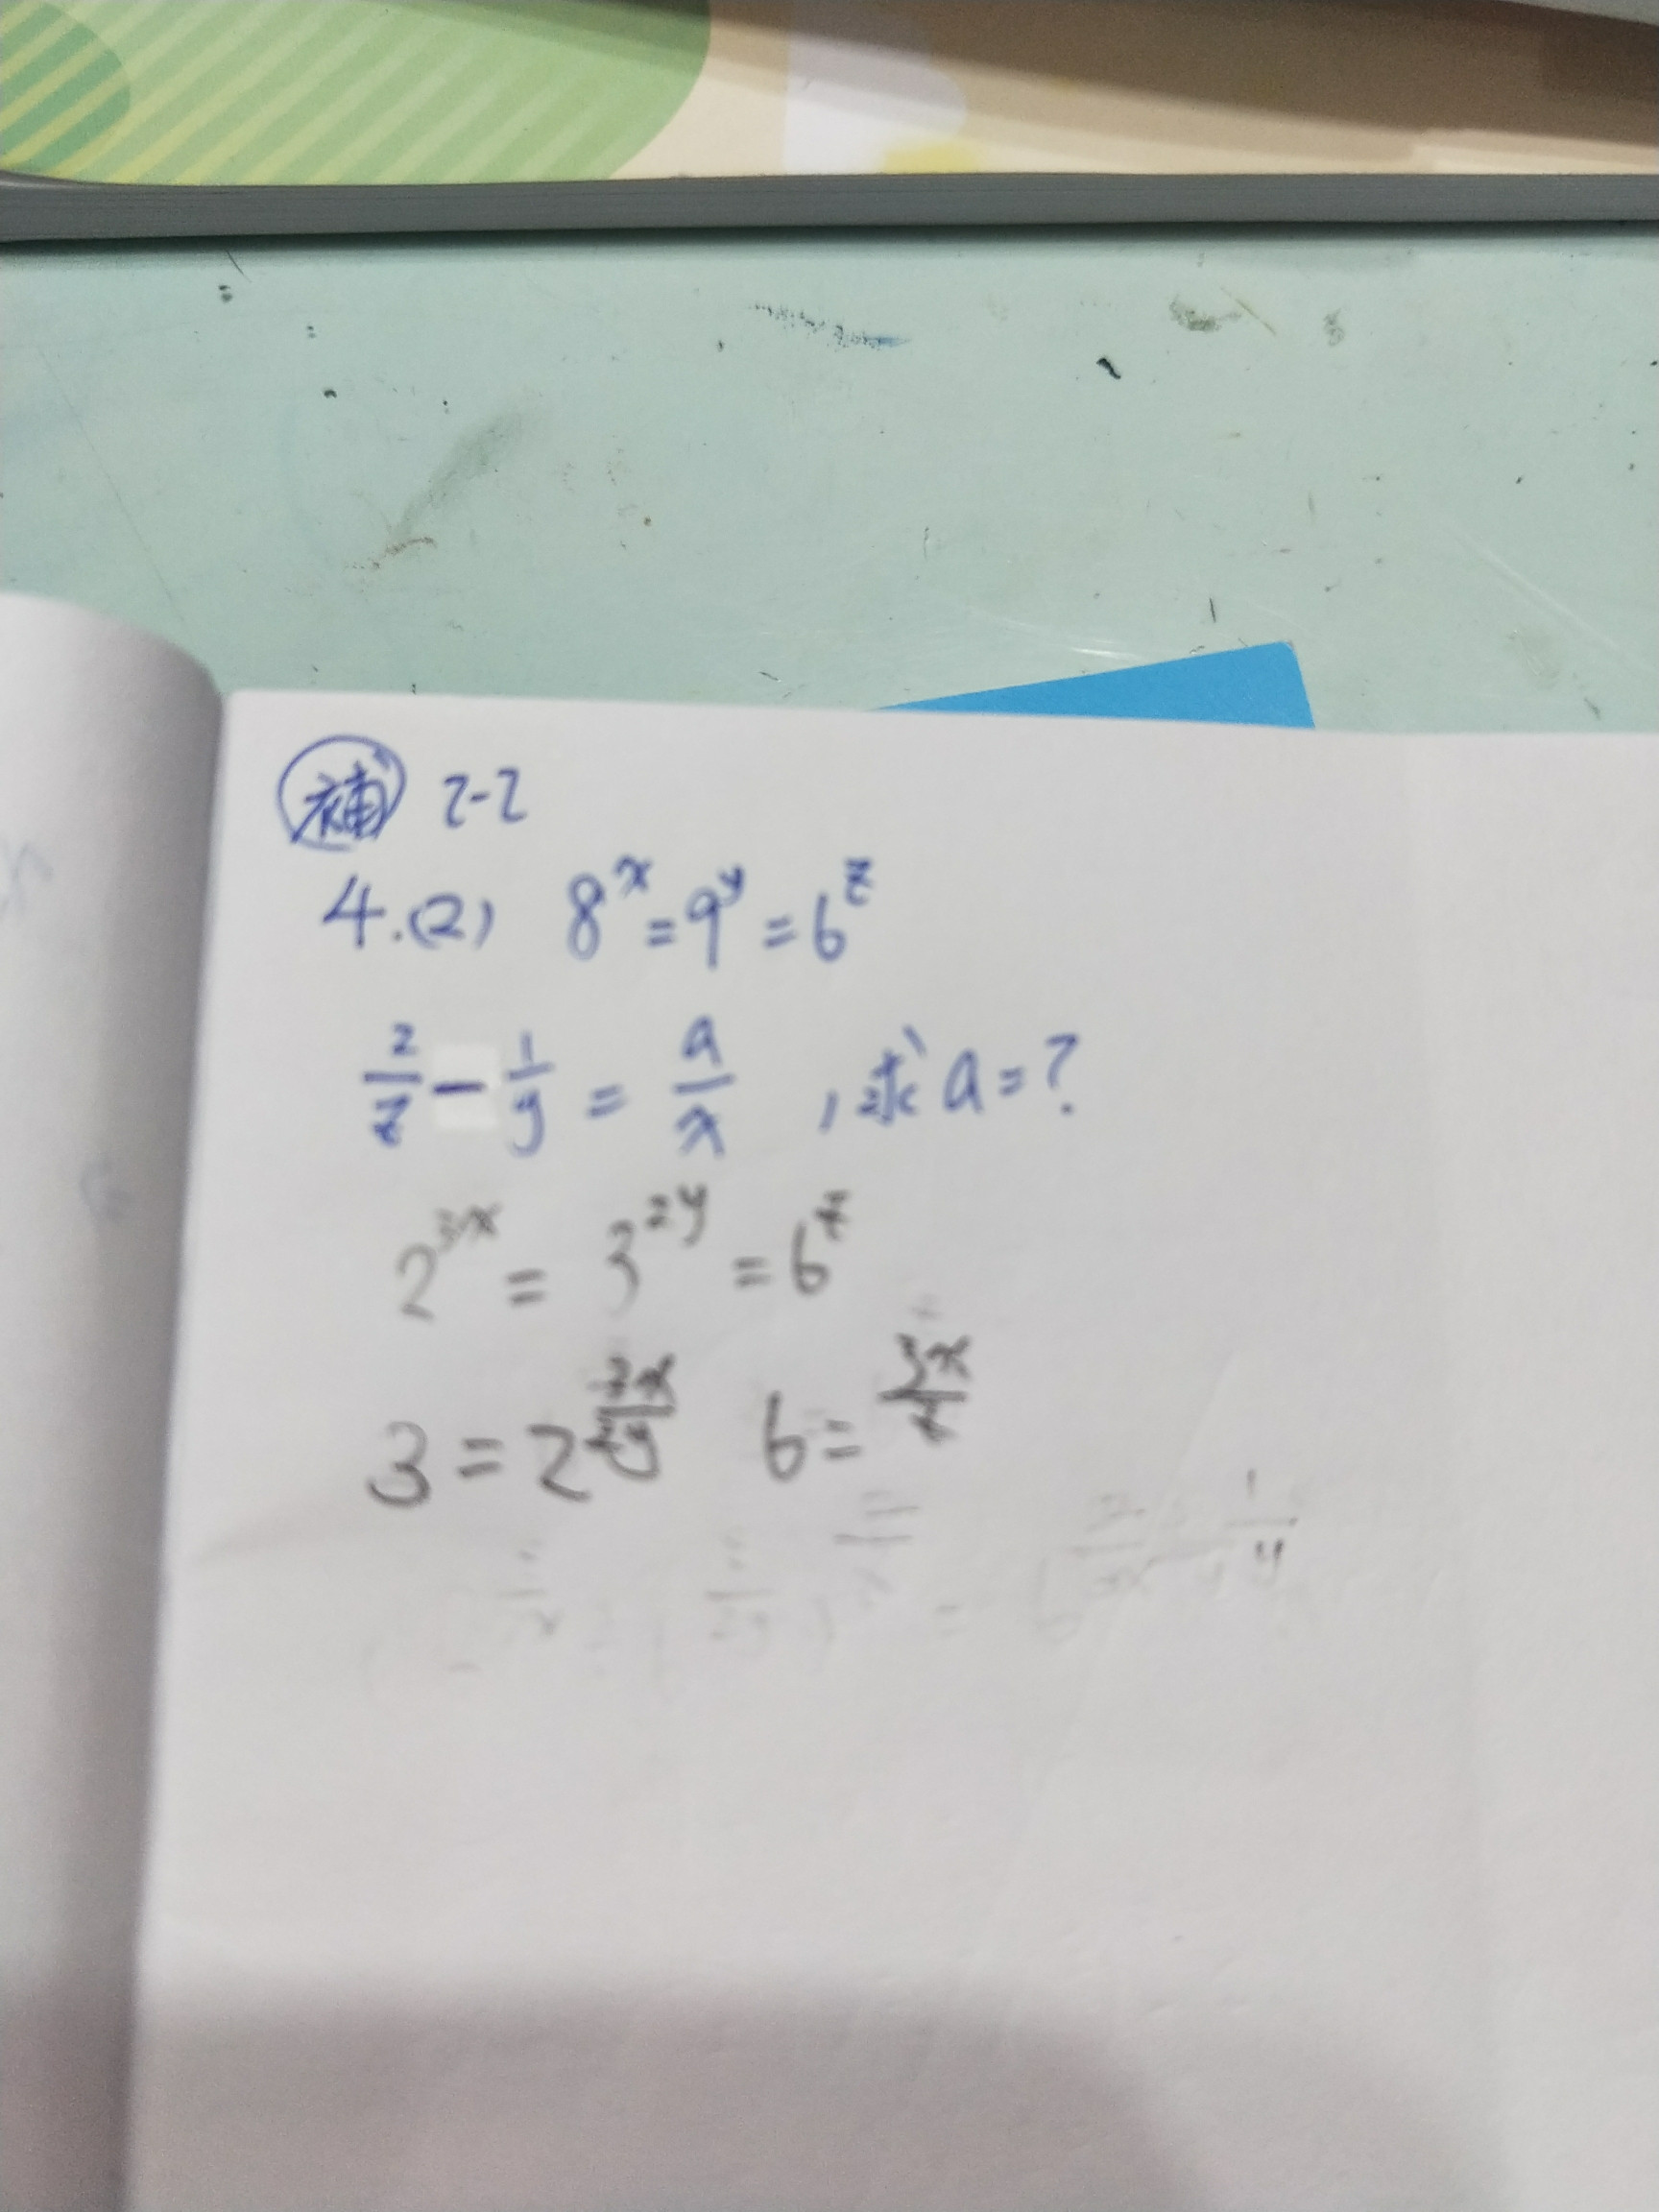 補 2-2
4.(2) 8^x=9^y=6^z
2/z - 1/y = a/x , 求 a=?
2^3x = 3^2y = 6^z
3=2^3x/2y 6= 3x/z